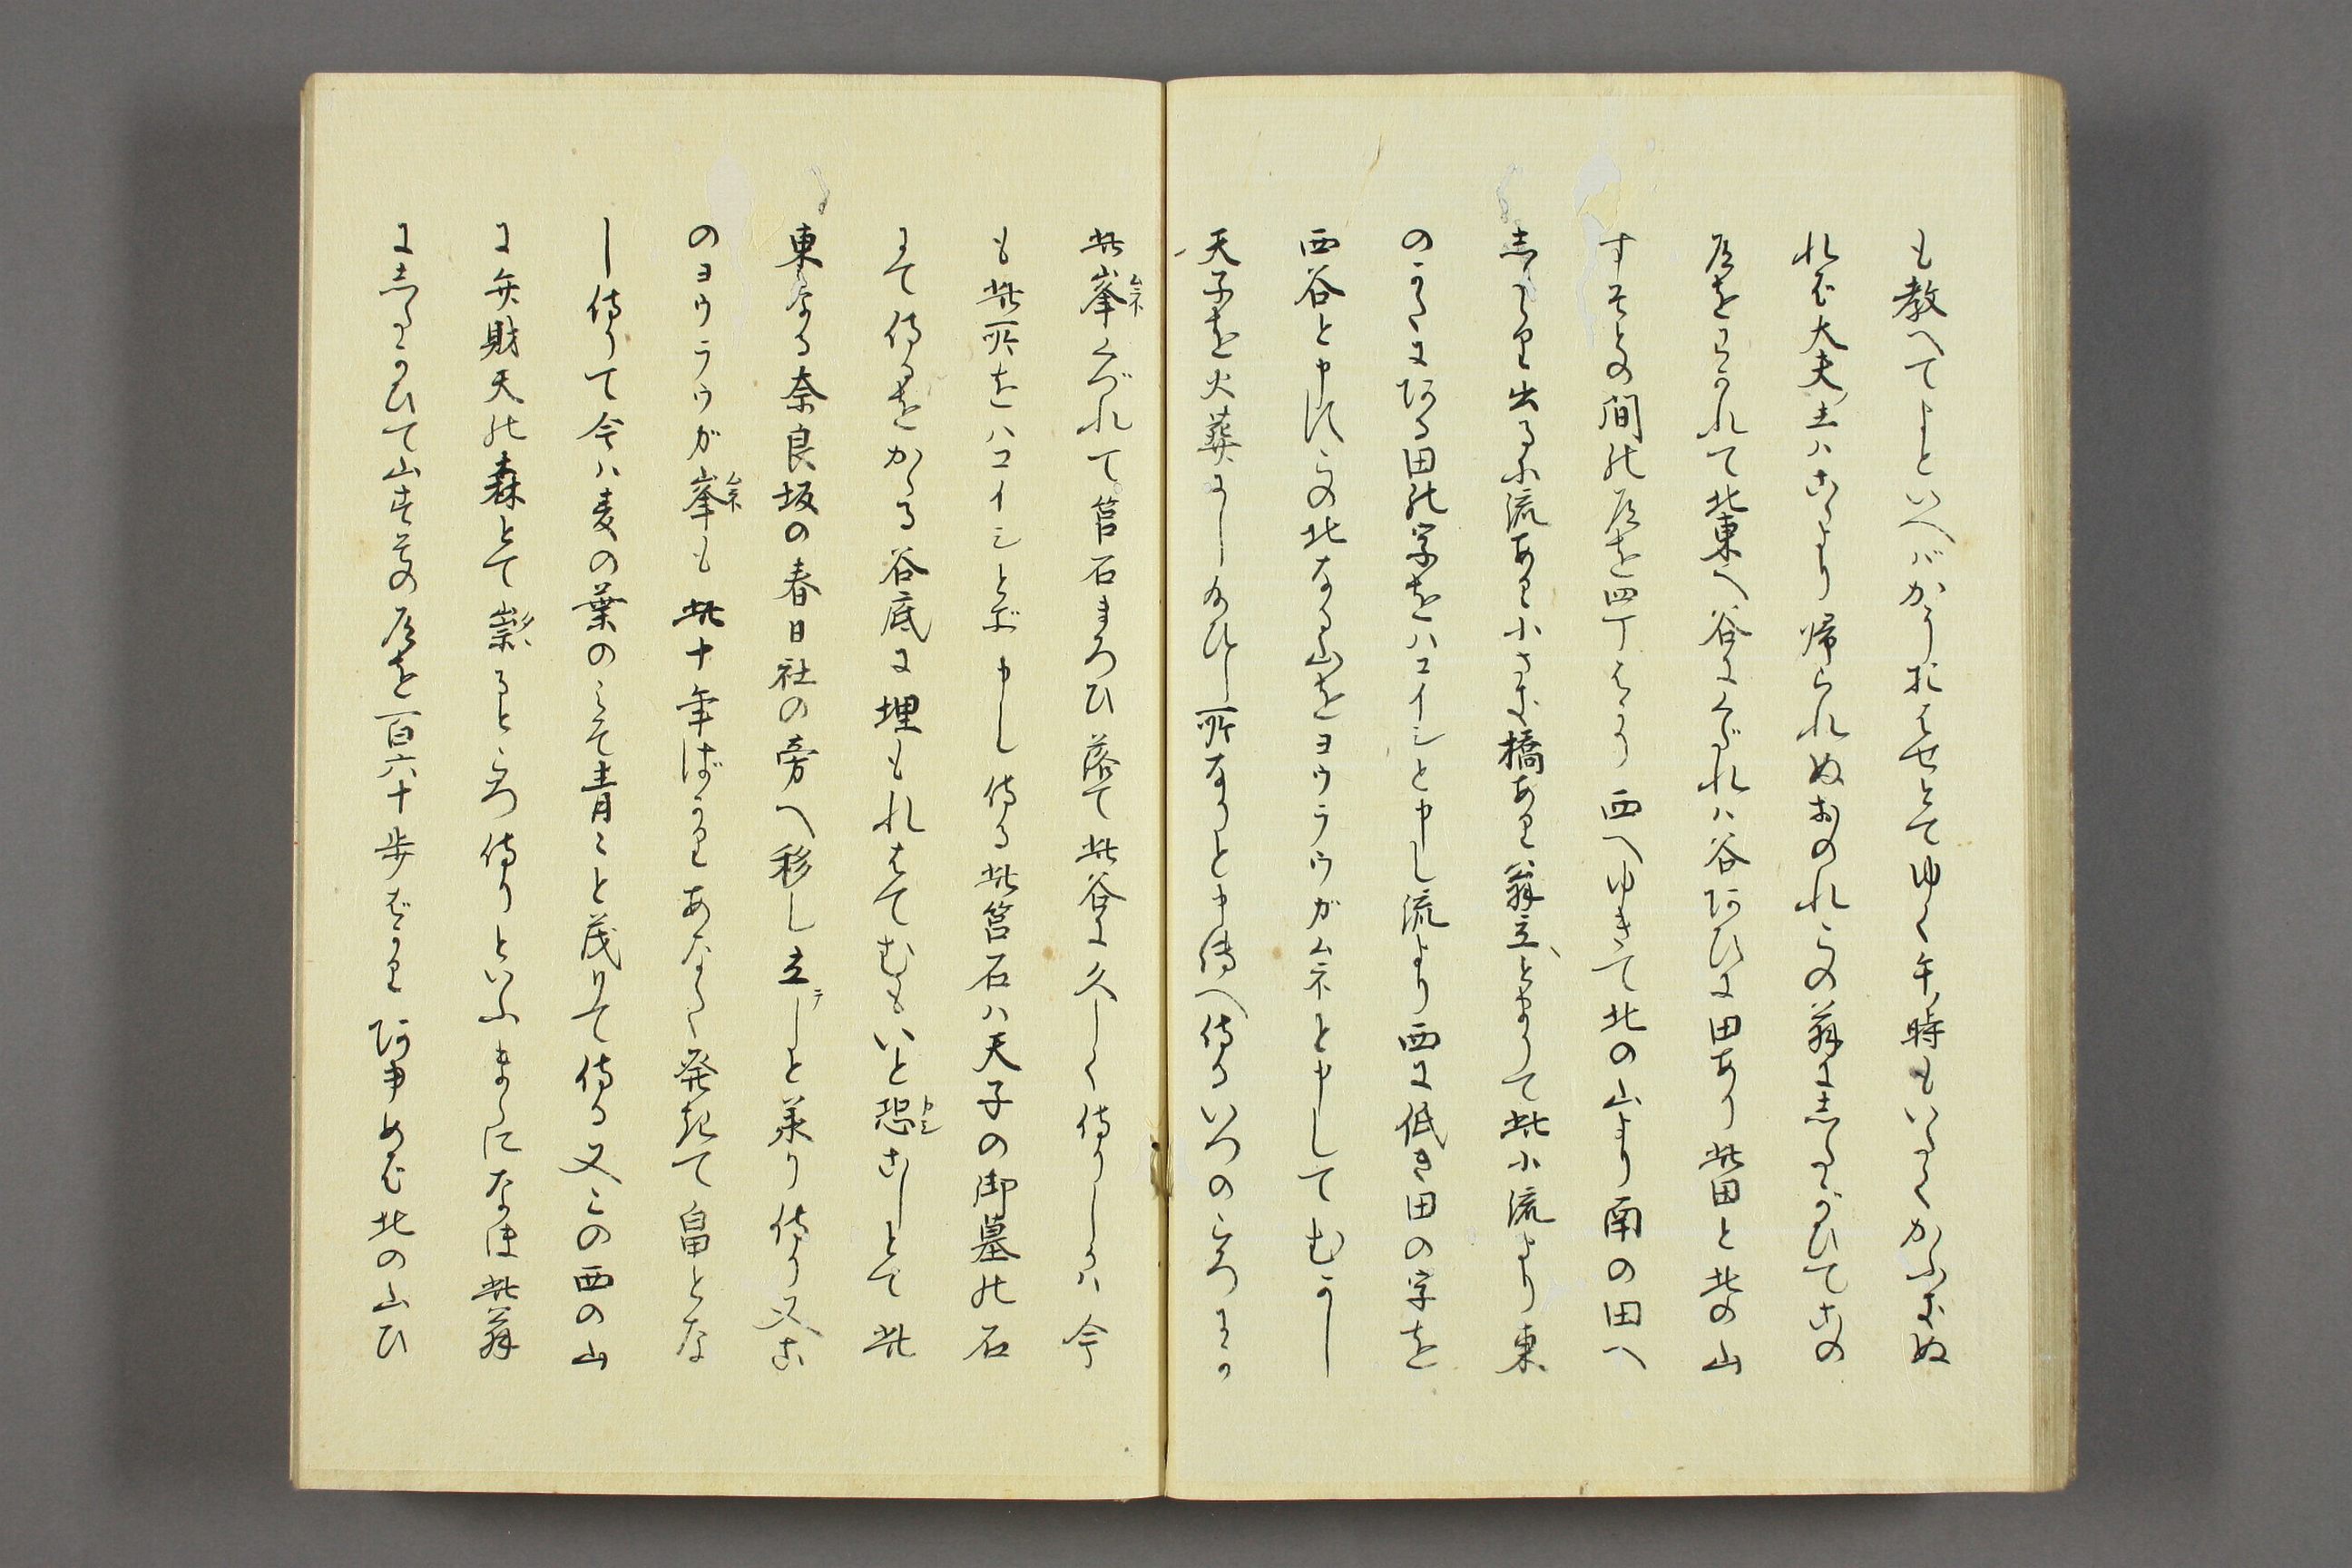 も教へてよといへバかうおはせとてゆく午時もいたくかふきぬ
れば大夫主ハこゝより帰られぬおのれこの翁にしたがひてこの
道をわかれて北東へ谷にくだれハ谷あひに田あり此田と北の山
すそとの間の道を四丁はかり西へゆきて北の山より南の田へ
しり出る小流あり小さき橋あり翁立とまりて此小流より東
のかたにある田の字をハコイシと申し流より西に低き田の字を
西谷と申すこの北なる山をヨウラウガムネと申してむかし
天子を火葬にし給ひし所なりと申傳へ侍るいつのころにか
此峯ムネくづれて筥石まろひ落て此谷に久しく侍りしかハ今
も此所をハコイシとぞ申し侍る此筥石ハ天子の御墓の石
にて侍るをかゝる谷底に埋もれはてむもいと恐カシこしとて此
東なる奈良坂の春日社の旁へ移し立テしと承り侍り又こ
のヨウラウが峯ムネも此十年ばかりあなた発起て畠とな
し侍りて今ハ麦の葉のミて青〻と茂りて侍る又この西の山
に弁財天の森とて崇るところ侍りといふまゝになほ此翁
にしたかひて山すその道を百六十歩ばかりあゆめば北の山ひ